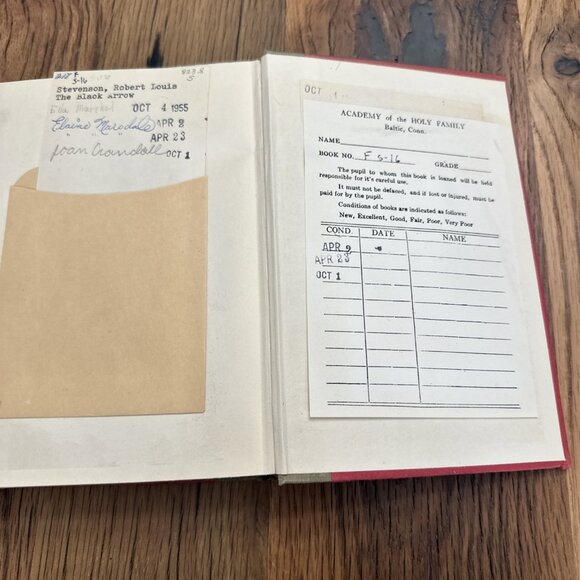 S-16
Stevenson, Robert Louis
The Black Arrow
OCT 4 1955
Elaine Marsdale APR 2
" " " APR 23
Joan Crandall OCT 1
OCT
ACADEMY of the HOLY FAMILY
Baltic, Conn.
NAME
BOOK NO. F S-16 GRADE
The pupil to whom this book is loaned will be held
responsible for it's careful use.
It must not be defaced, and if lost or injured, must be
paid for by the pupil.
Conditions of books are indicated as follows:
New, Excellent, Good, Fair, Poor, Very Poor
COND. DATE NAME
APR 2
APR 23
OCT 1